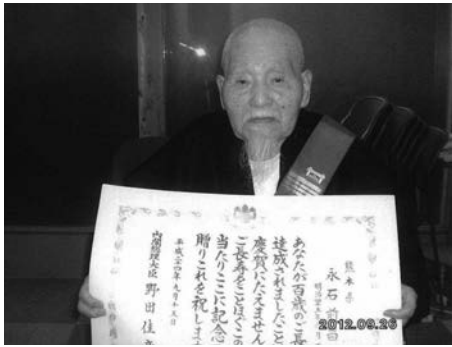 熊本県
永石
あなたが百歳のご長
達成されましたこと
慶賀にたえません
ご長寿をことほぐこの
当たりここに記念
贈りこれを祝しま
平成二十四年九月十五日
内閣総理大臣 野田佳
2012.09.26